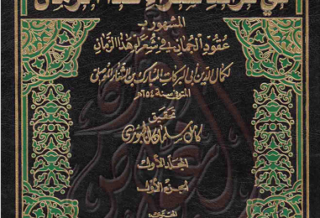 المشهور بـ
عقود الجمان في شعراء هذا الزمان
لكمال الدين أبي البركات المبارك بن الشعار الموصلي
المتوفى سنة ٦٥٤هـ
تحقيق
كامل سلمان الجبوري
المجلد الأول
الجزء الأول